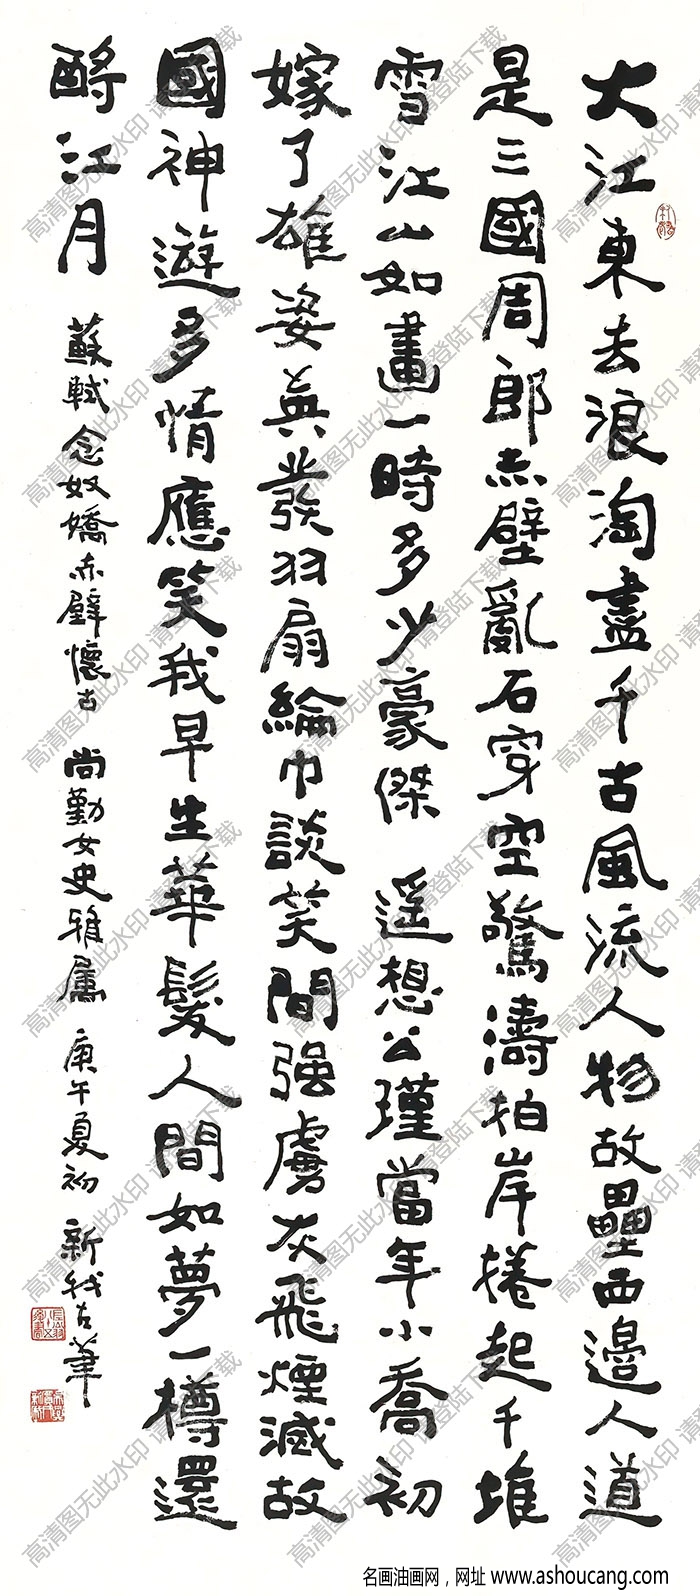 大江東去浪淘盡千古風流人物故壘西邊人道
是三國周郎赤壁亂石穿空驚濤拍岸捲起千堆
雪江山如畫一時多少豪傑 遥想公瑾當年小喬初
嫁了雄姿英發羽扇綸巾談笑間强虜灰飛煙滅故
國神遊多情應笑我早生華髮人間如夢一樽還
酹江月 蘇軾念奴嬌赤壁懷古 尚勤女史雅属 庚午夏初 新我左筆
名画油画网，网址 www.ashoucang.com
高清图无此水印 请登陆下载